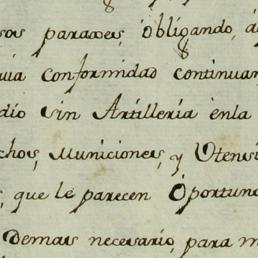 sos paraxes, obligando, á
uia conformidad continuan
dio sin Artilleria enla
chos, Municiones, y Utensi
que le parecen Oportuno
Demas necesario, para m